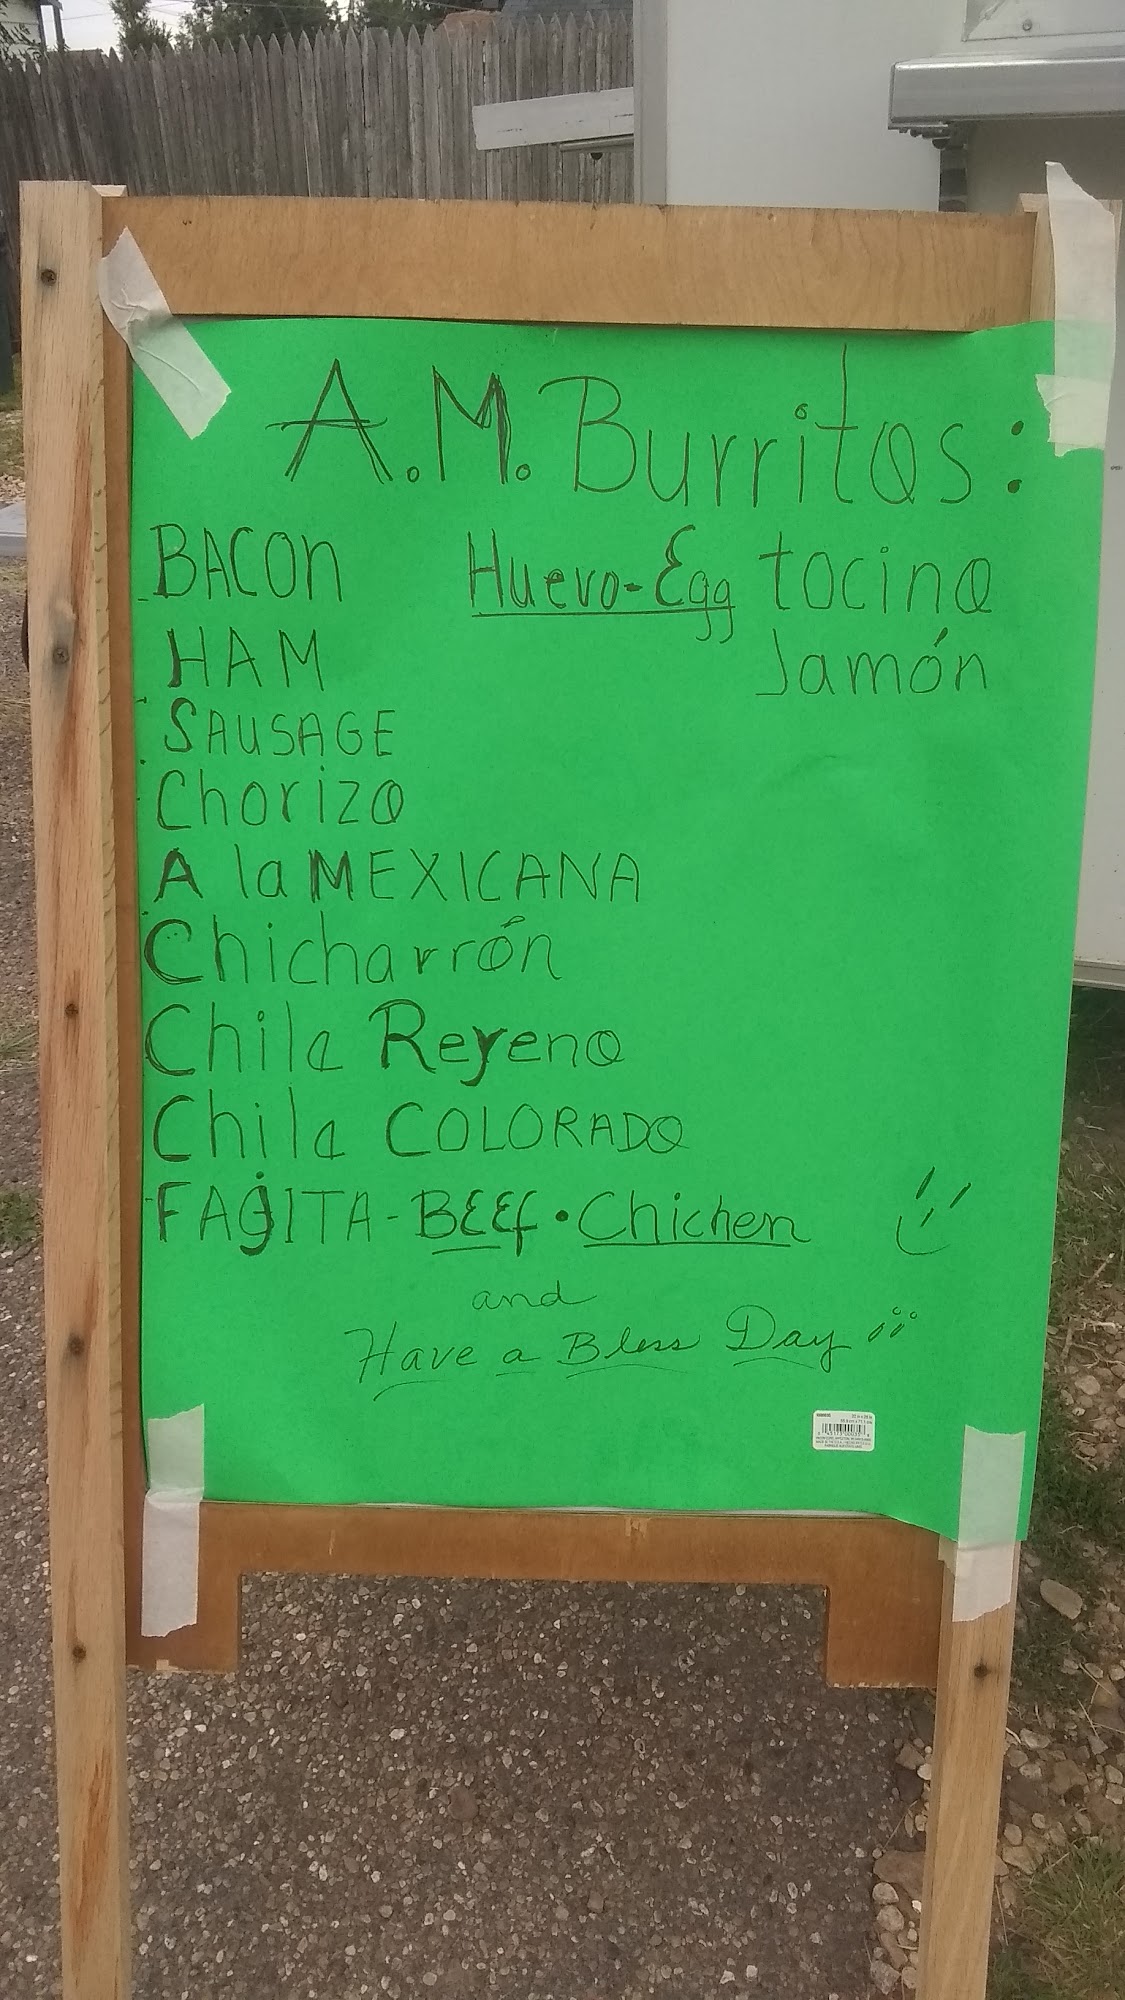 A.M. Burritos:
BACON Huevo-Egg tocino
HAM Jamón
SAUSAGE
Chorizo
A la MEXICANA
Chicharrón
Chile Reyeno
Chile COLORADO
FAjITA - BEEf • Chicken
and
Have a Bless Day